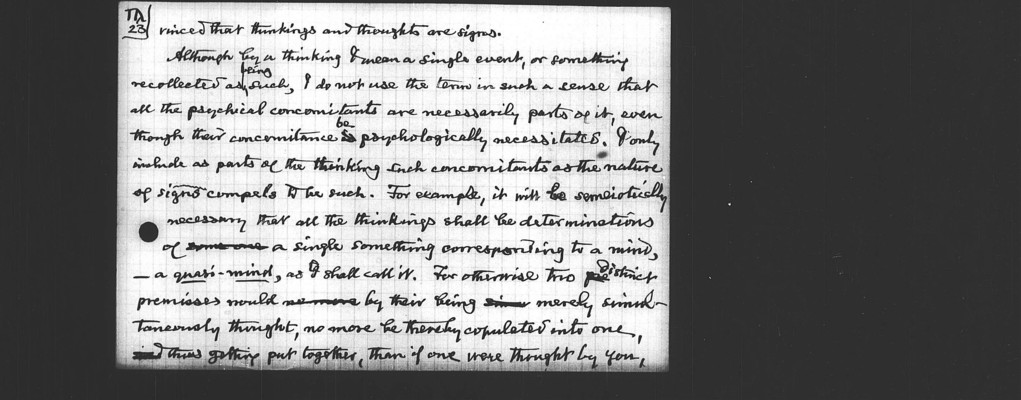 TM
23
vinced that thinkings and thoughts are signs.
Although by a thinking I mean a single event, or something
recollected as being such, I do not use the term in such a sense that
all the psychical concomitants are necessarily parts of it, even
though their concomitance be psychologically necessitated. I only
include as parts of the thinking such concomitants as the nature
of signs compels to be such. For example, it will be semeiotically
necessary that all the thinkings shall be determinations
of some one a single something corresponding to a mind,
— a quasi-mind, as I shall call it. For otherwise two distinct
premisses would no more by their being merely simul-
taneously thought, no more be thereby copulated into one,
and thus getting put together, than if one were thought by you,